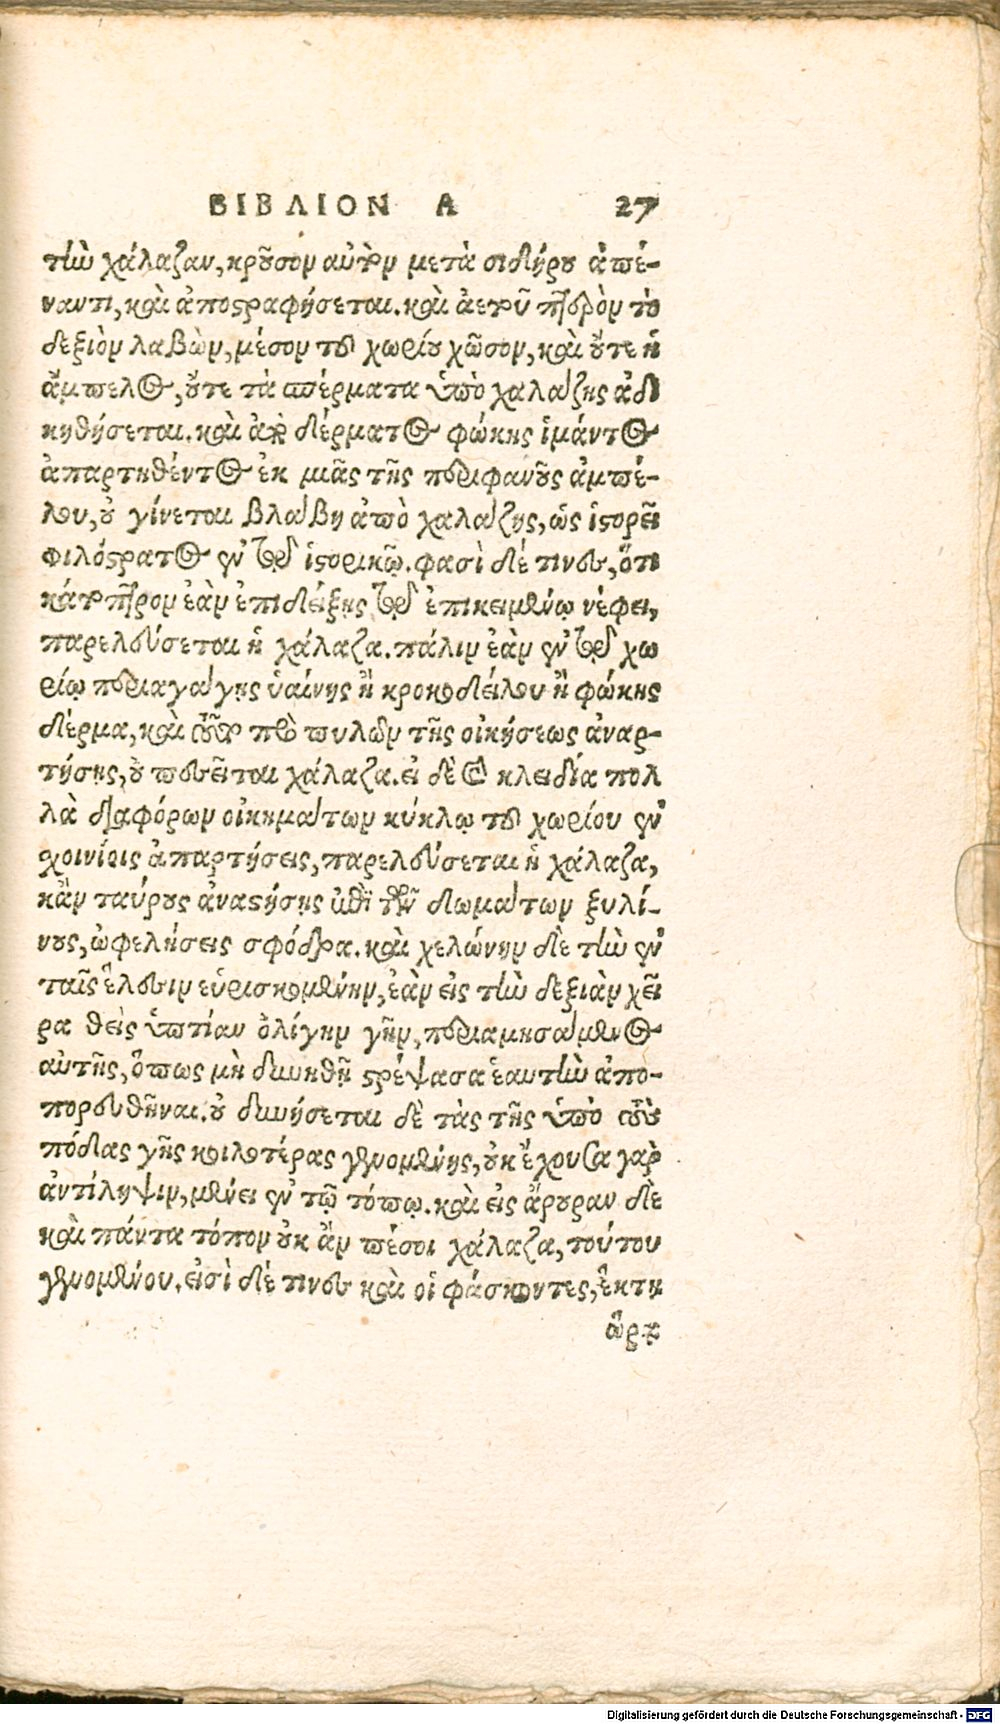 ΒΙΒΛΙΟΝ Α 27
τὴν χάλαζαν, κροῦσον αὐτὸν μετὰ σιδήρου ἀπέ-
ναντι, καὶ ἀποστραφήσεται. καὶ ἀετοῦ πτερὸν τὸ
δεξιὸν λαβὼν, μέσον τοῦ χωρίου χῶσον, καὶ οὔτε ἡ
ἄμπελος, οὔτε τὰ σπέρματα ὑπὸ χαλάζης ἀδι
κηθήσεται. καὶ ἀπὸ δέρματος φώκης ἱμάντος
ἀπαρτηθέντος ἐκ μιᾶς τῆς περιφανοῦς ἀμπέ-
λου, οὐ γίνεται βλάβη ἀπὸ χαλάζης, ὡς ἱστορεῖ
φιλόστρατος ἐν τῷ ἱστορικῷ. φασὶ δέ τινες, ὅτι
κάτοπτρον ἐὰν ἐπιδείξῃς τῷ ἐπικειμένῳ νέφει,
παρελεύσεται ἡ χάλαζα. πάλιν ἐὰν ἐν τῷ χω
ρίῳ περιαγάγῃς ὑαίνης ἢ κροκοδείλου ἢ φώκης
δέρμα, καὶ τοῦτο πρὸ πυλῶν τῆς οἰκήσεως ἀναρ-
τήσῃς, οὐ πεσεῖται χάλαζα. εἰ δὲ καὶ κλειδία πολ
λὰ διαφόρων οἰκημάτων κύκλῳ τοῦ χωρίου ἐν
χοινίοις ἀπαρτήσεις, παρελεύσεται ἡ χάλαζα,
κἂν ταύρους ἀναστήσῃς ἐπὶ τῶν δωμάτων ξυλί-
νους, ὠφελήσεις σφόδρα. καὶ χελώνην δὲ τὴν ἐν
ταῖς ἕλεσιν εὑρισκομένην, ἐὰν εἰς τὴν δεξιὰν χεῖ
ρα θεὶς ὑπτίαν ὀλίγην γῆν, περιαμησάμενος
αὐτῆς, ὅπως μὴ δυνηθῇ στρέψασα ἑαυτὴν ἀπο-
πορευθῆναι. οὐ δυνήσεται δὲ τὰς τῆς ὑπὸ τοὺς
πόδας γῆς κοιλοτέρας γενομένης, οὐκ ἔχουσα γὰρ
ἀντίληψιν, μένει ἐν τῷ τόπῳ. καὶ εἰς ἄρουραν δὲ
καὶ πάντα τόπον οὐκ ἂν πέσοι χάλαζα, τούτου
γενομένου. εἰσὶ δέ τινες καὶ οἱ φάσκοντες, ἕκτῃ
ὥρᾳ